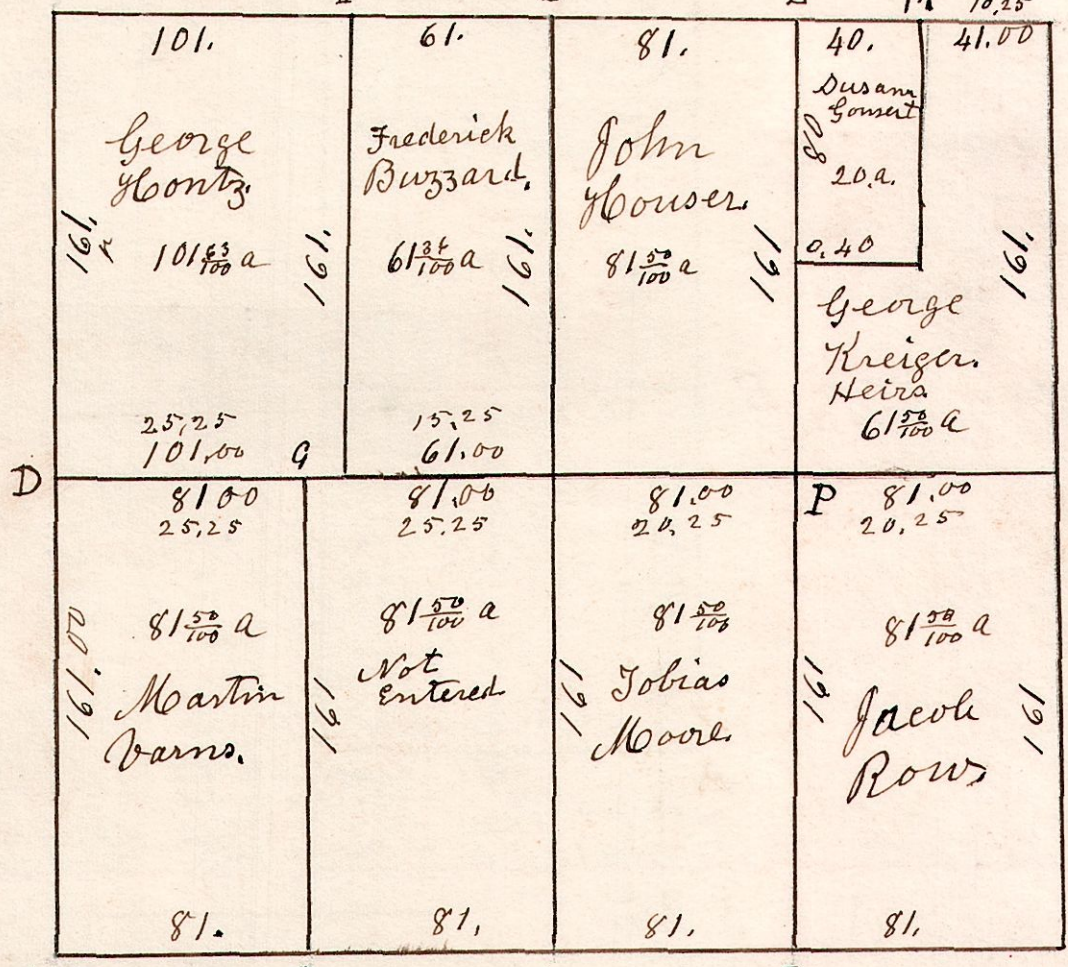 10,25
101.
George
Hontz.
161.
101 63/100 a
161.
25,25
101,00
G
61.
Frederick
Buzzard.
61 36/100 a
161.
15,25
61.00
81.
John
Houser.
81 50/100 a
161
40.
Susann
Gonsert
80
20.a.
0,40
41.00
161.
George
Kreiger.
Heirs
61 50/100 a
D
81 00
25,25
161.00
81 50/100 a
Martin
Varns.
81.
81,00
25.25
161
81 50/100 a
Not
Entered
81,
81,00
20,25
161
81 50/100
Tobias
Moore.
81.
P
81,00
20,25
161
81 50/100 a
Jacob
Rows
161
81.